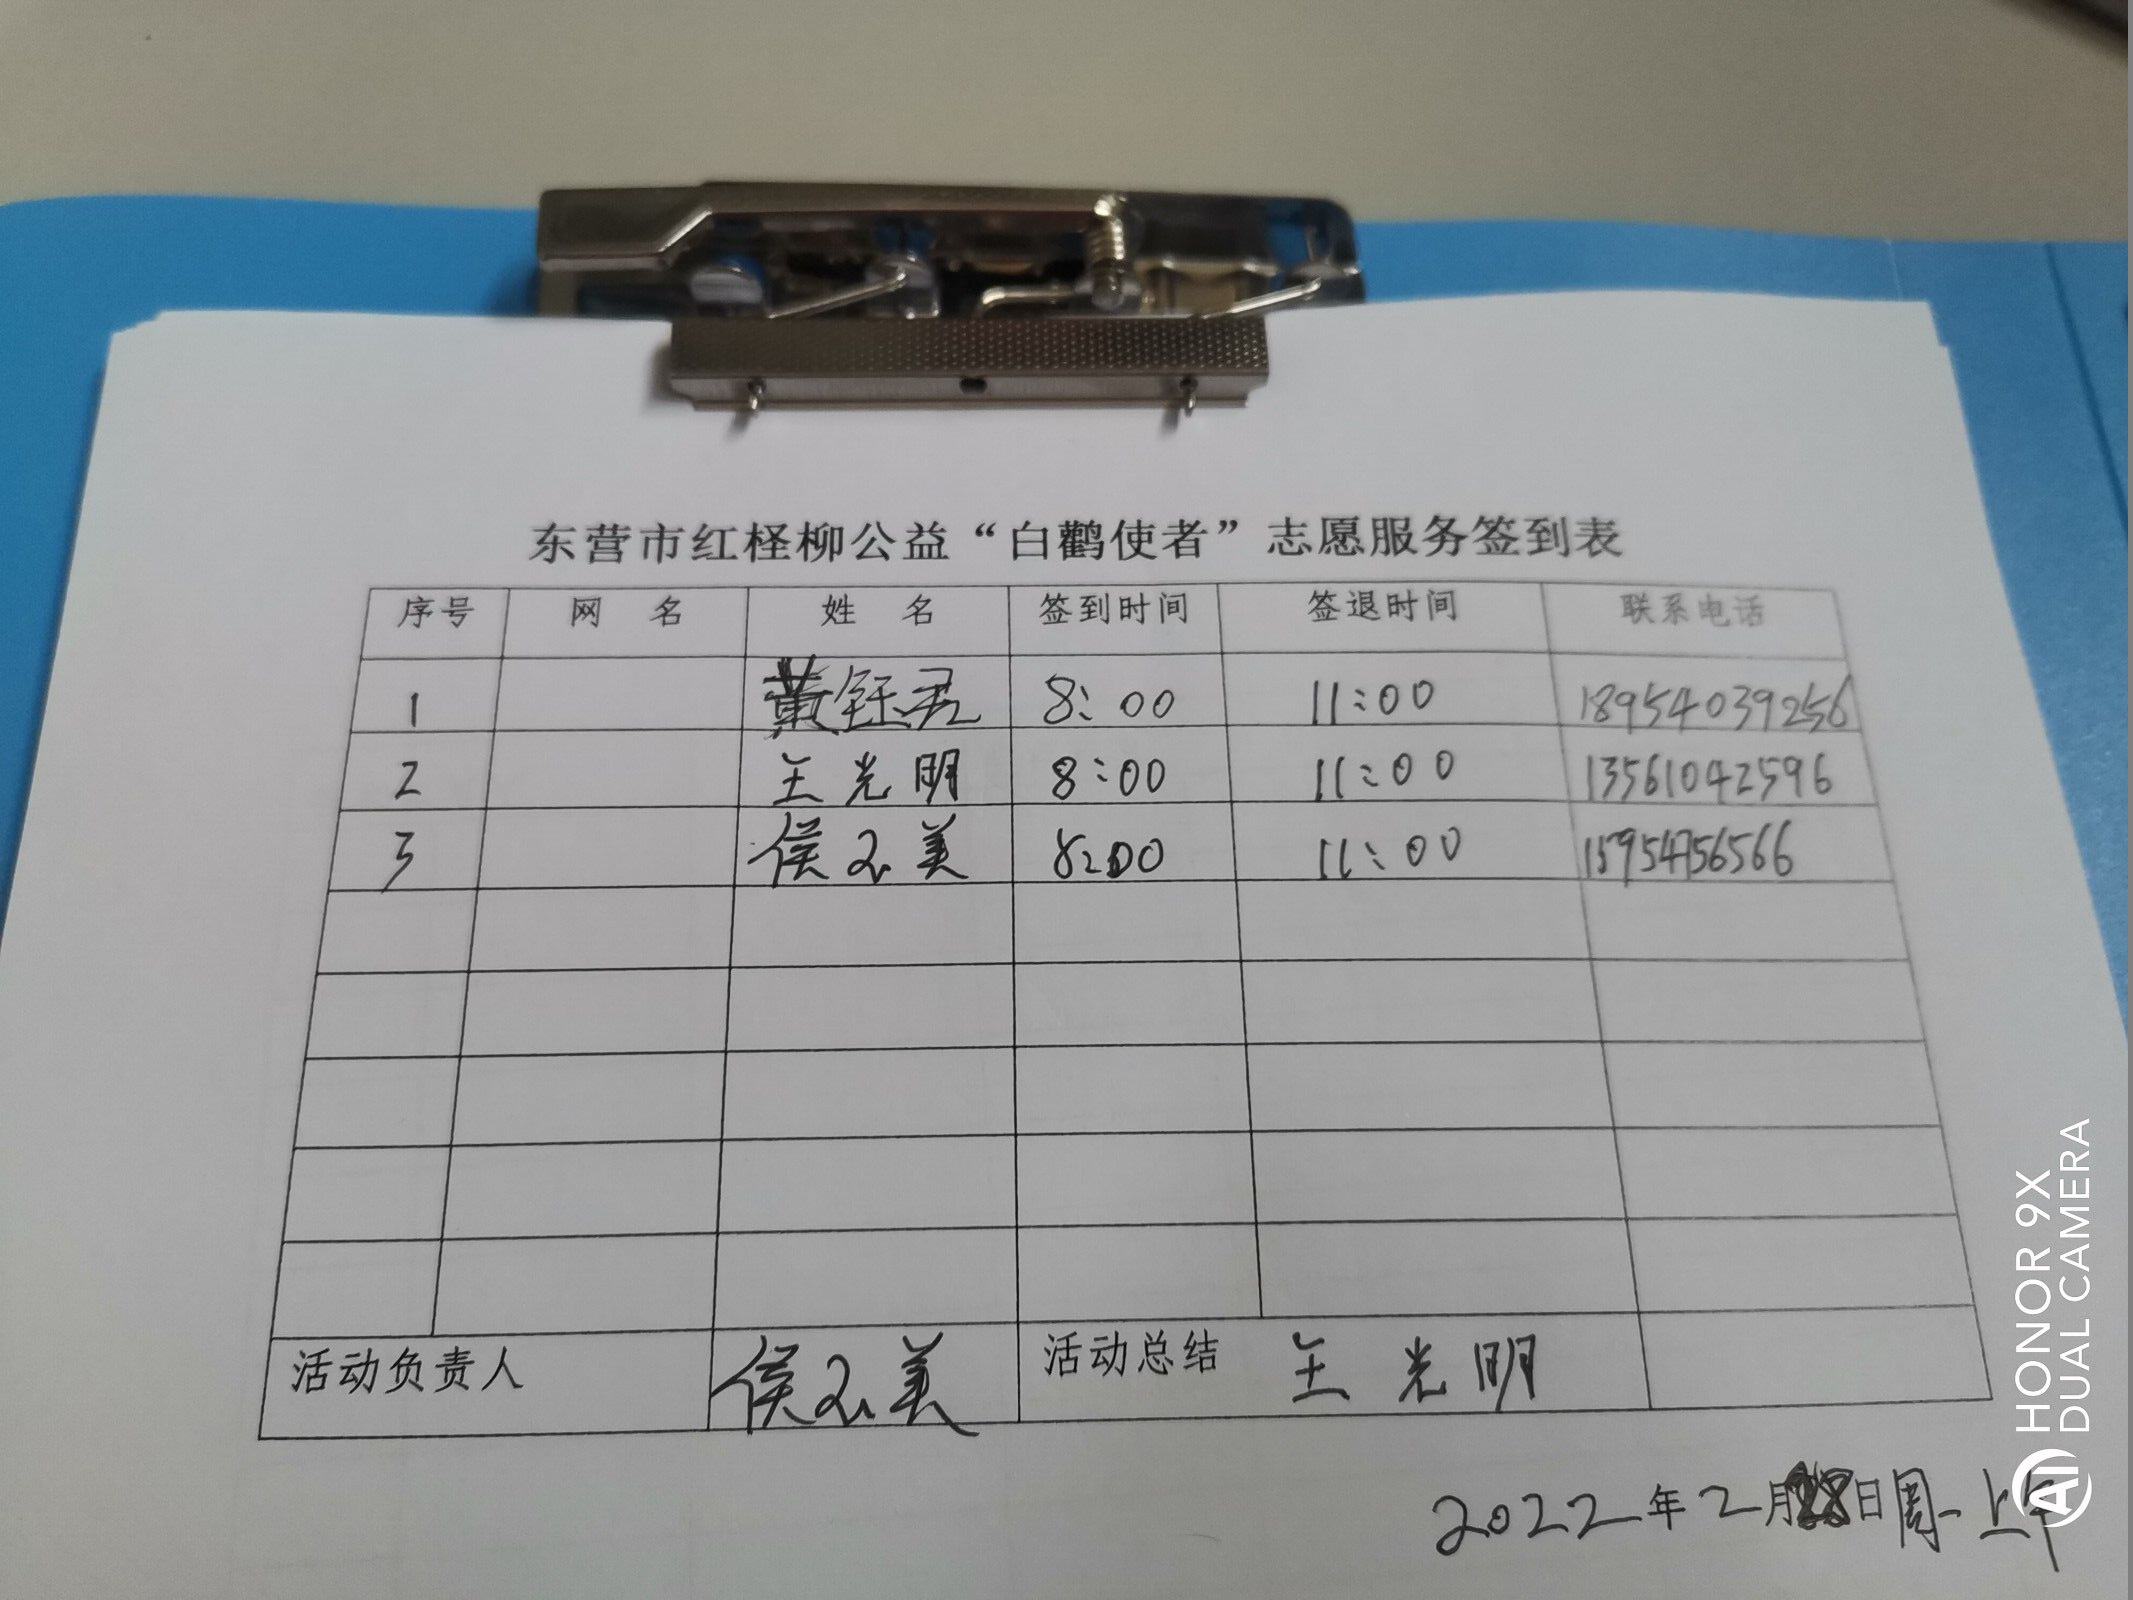 东营市红柽柳公益“白鹳使者”志愿服务签到表
序号 网 名 姓 名 签到时间 签退时间 联系电话
1 黄钰君 8:00 11:00 18954039256
2 王光明 8:00 11:00 13561042596
3 侯玉美 8:00 11:00 15954756566
活动负责人 侯玉美 活动总结 王光明
2022年2月28日周一上午
HONOR 9X
DUAL CAMERA
AI